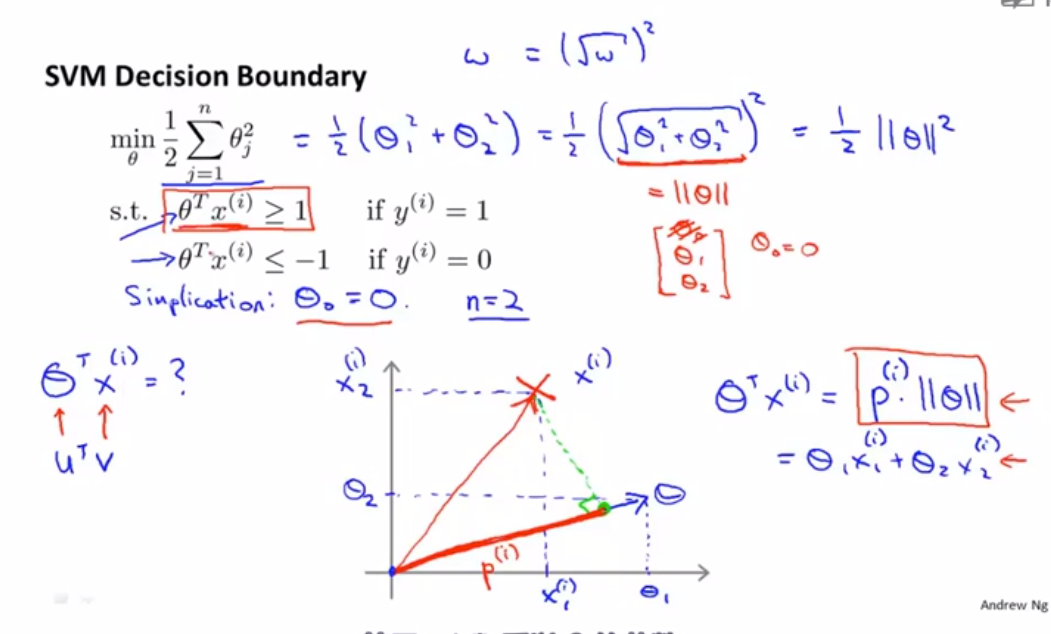 ω = (√ω)²
SVM Decision Boundary
min_θ 1/2 ∑_{j=1}^{n} θ_j² = 1/2 (θ₁² + θ₂²) = 1/2 (√(θ₁² + θ₂²))² = 1/2 ||θ||²
= ||θ||
s.t. θᵀx⁽ⁱ⁾ ≥ 1 if y⁽ⁱ⁾ = 1
θᵀx⁽ⁱ⁾ ≤ −1 if y⁽ⁱ⁾ = 0
[θ₀ θ₁ θ₂] θ₀ = 0
Simplication: θ₀ = 0. n=2
θᵀx⁽ⁱ⁾ = ?
uᵀv
x₂⁽ⁱ⁾
x⁽ⁱ⁾
θ₂
θ
p⁽ⁱ⁾
x₁⁽ⁱ⁾
θ₁
θᵀx⁽ⁱ⁾ = p⁽ⁱ⁾ · ||θ||
= θ₁x₁⁽ⁱ⁾ + θ₂x₂⁽ⁱ⁾
Andrew Ng